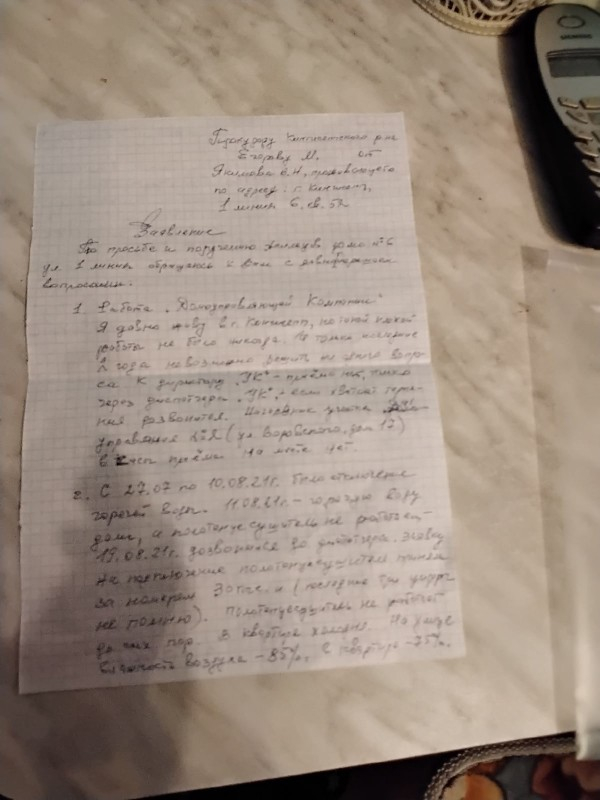 Прокурору Кингисеппского р-на
Егорову М. от
Якимова В.Н, проживающего
по адресу: г. Кингисепп,
1 линия 6, кв. 52
Заявление
По просьбе и поручению жильцов дома №6
ул. 1 линия обращаюсь к Вам с
вопросами.
1. Работа "Домоуправляющей Компании"
Я давно живу в г. Кингисепп, но такой плохой
работы не было никогда. За только последние
2 года невозможно решить ни одного вопро-
са. К директору "УК" - приёма нет, только
через диспетчера "УК", если хватит терпе-
ния дозвонится. Начальник участка
управления №2 (ул. Воровского, дом 17)
в часы приёма на месте нет.
2. С 27.07 по 10.08.21г. было отключение
горячей воды. 11.08.21г. - горячую воду
дали, а полотенцесушитель не работает.
19.08.21г. дозвонился до диспетчера. Заявку
на подключение полотенцесушителя приняли
за номером (последние три цифры
не помню). Полотенцесушитель не работает
до сих пор. В квартире холодно. На улице
влажность воздуха - 85%, в квартире - 75%.